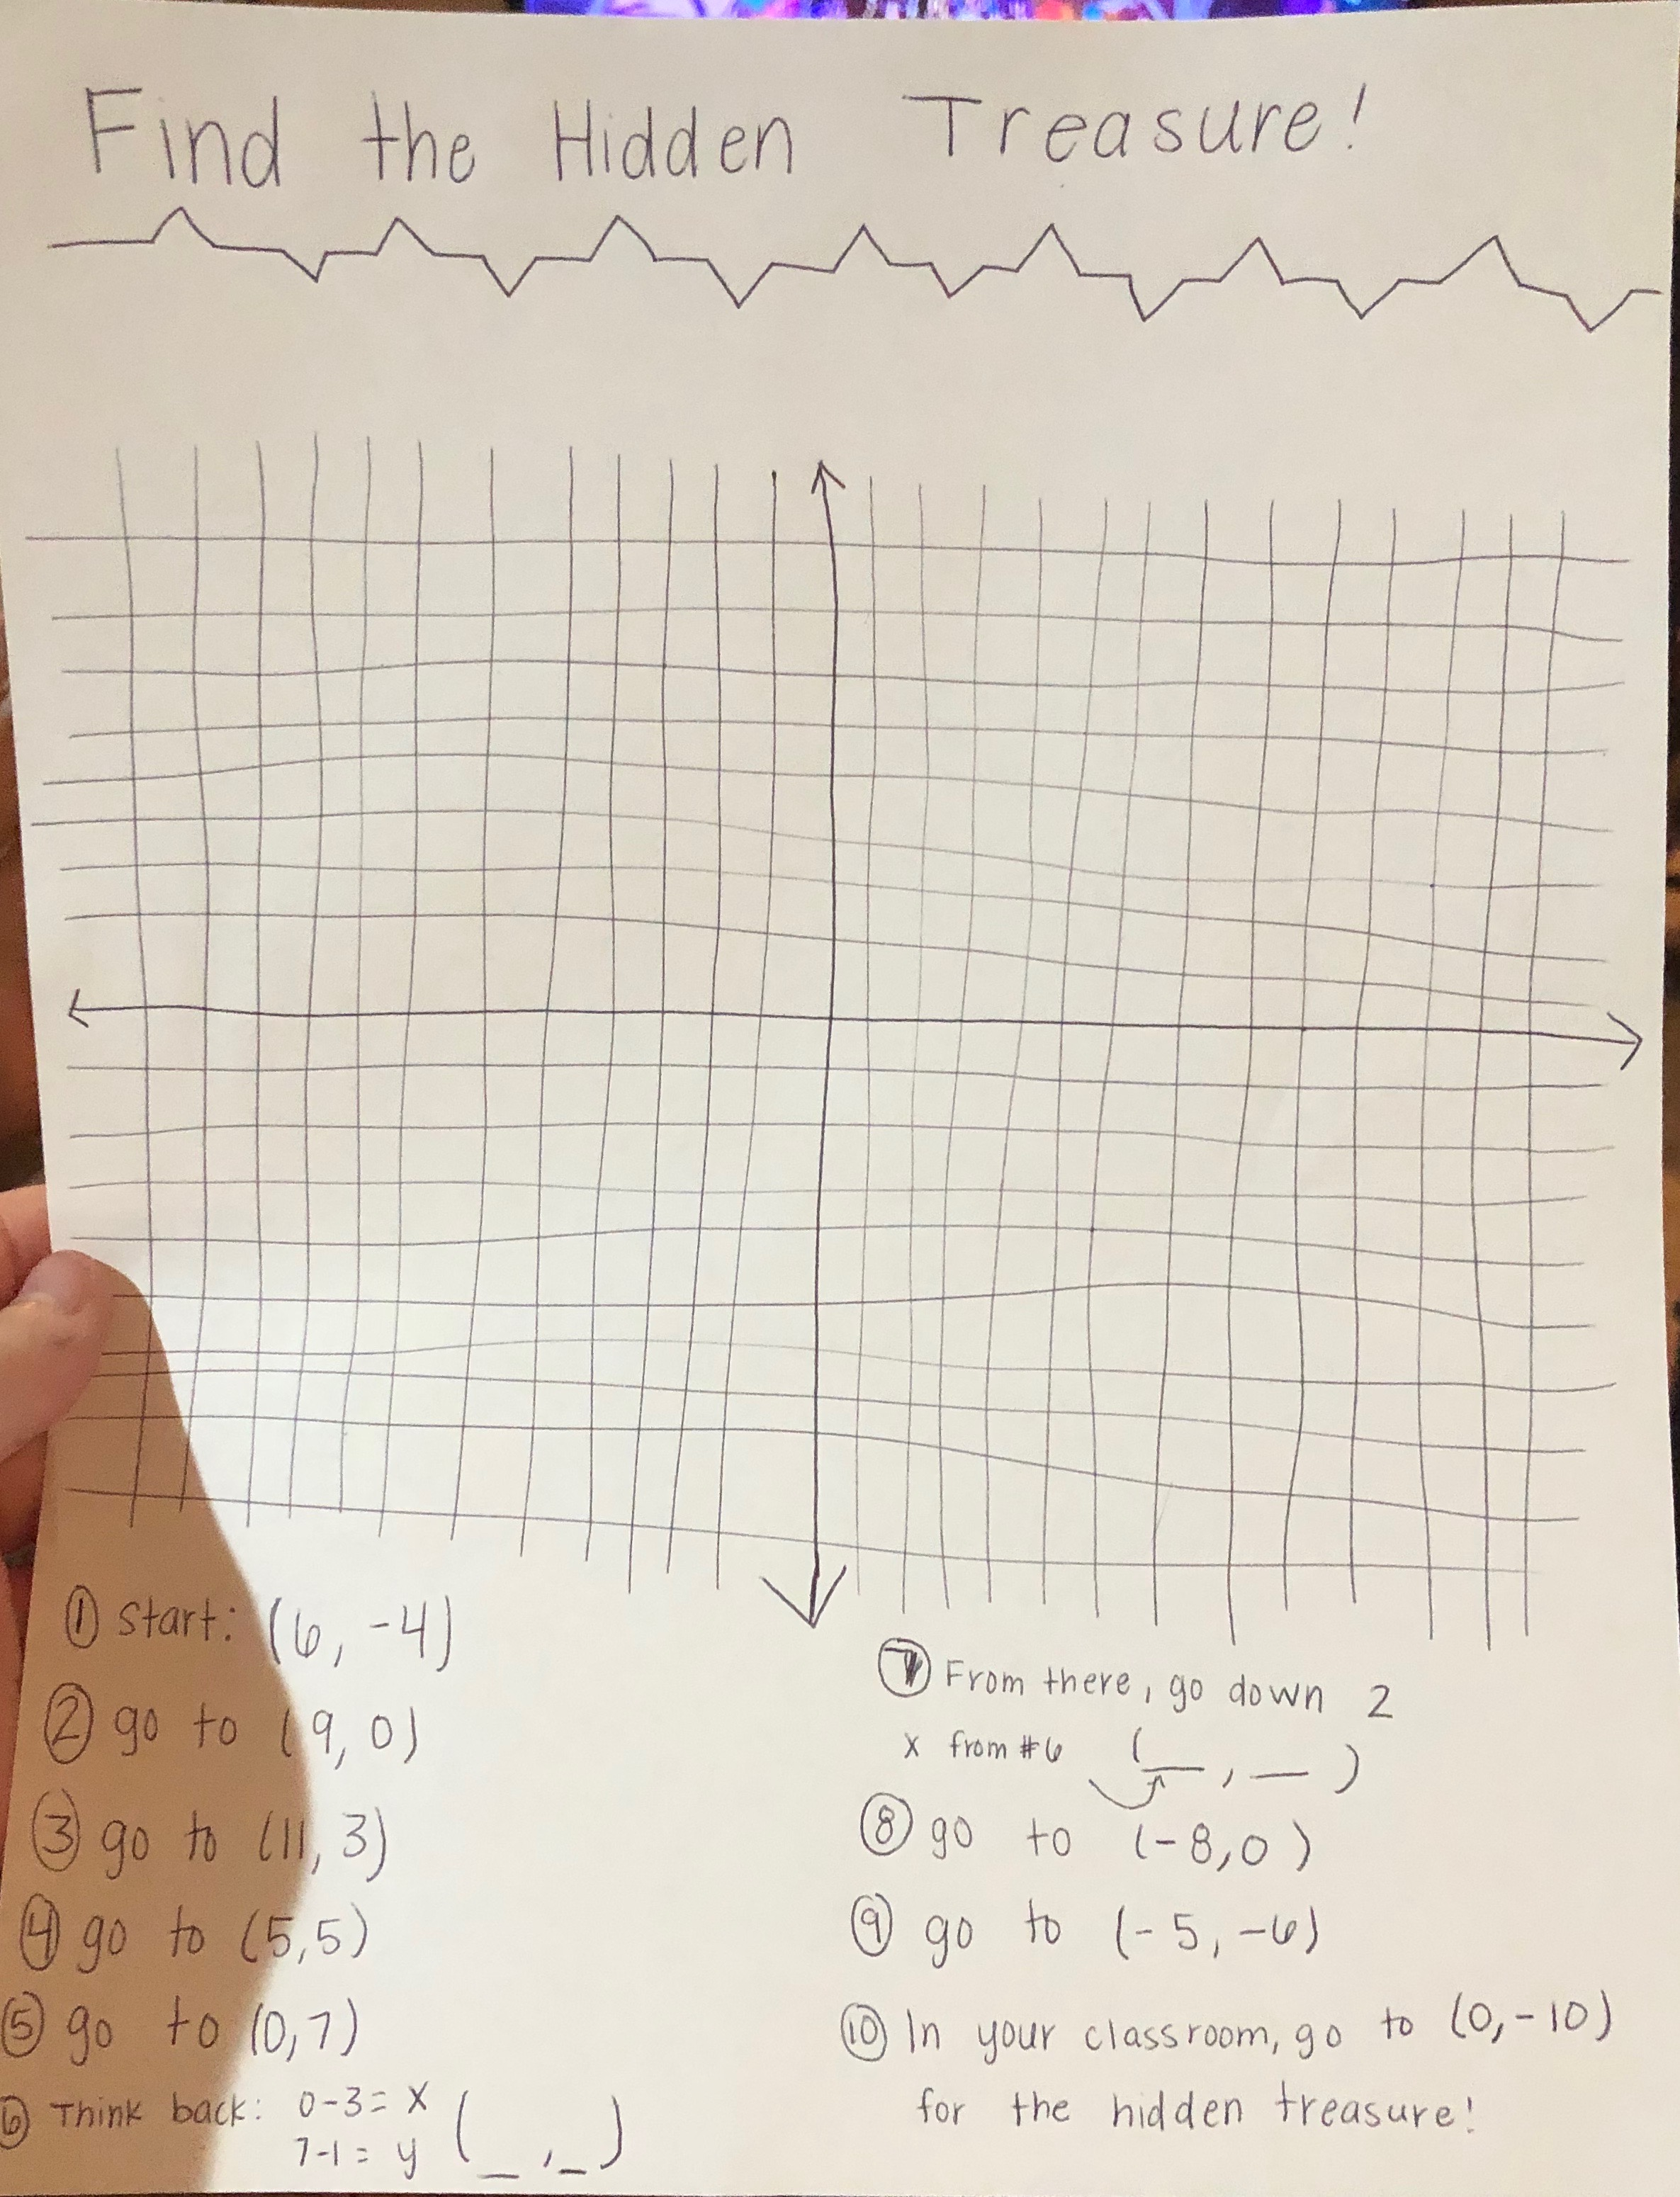 Find the Hidden Treasure!
① Start: (6, -4)
② go to (9, 0)
③ go to (11, 3)
④ go to (5,5)
⑤ go to (0,7)
⑥ Think back: 0-3= x
7-1= y (_ ,_)
⑦ From there, go down 2
x from #6 (__, __ )
⑧ go to (-8,0 )
⑨ go to (-5, -6)
⑩ In your classroom, go to (0,-10)
for the hidden treasure!